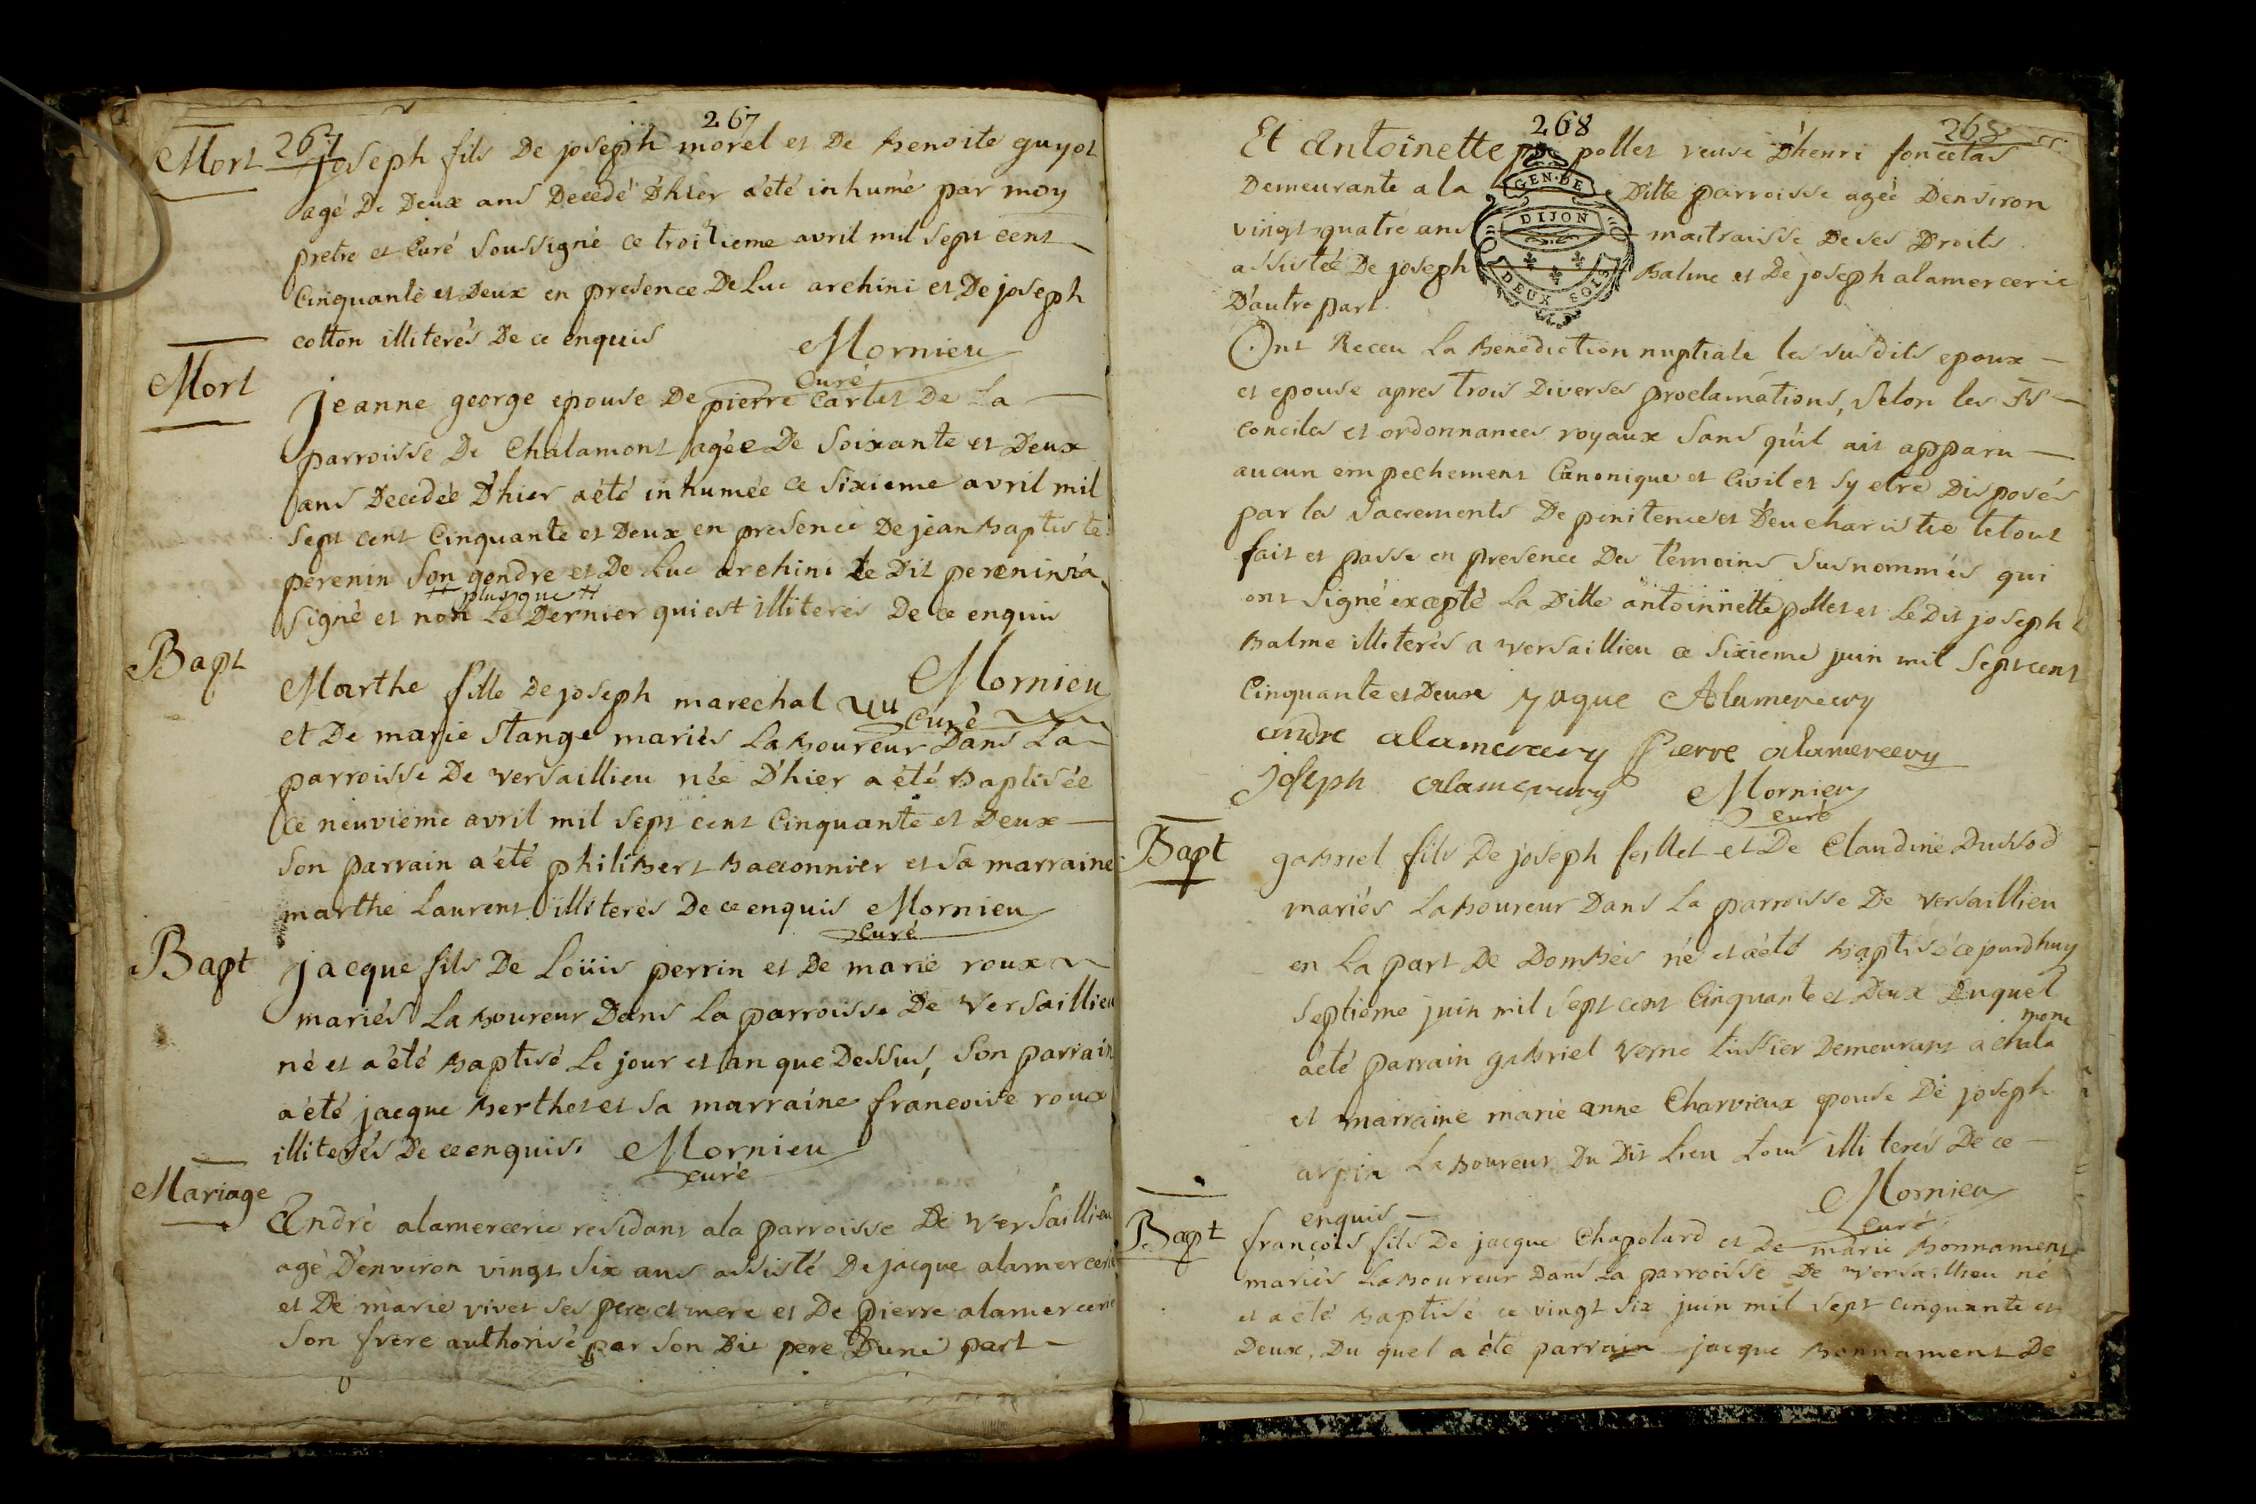 267
Mort 267 Joseph fils De joseph morel et De Benoite guyot
agé De Deux ans Decedé D'hier a été inhumé par moy
pretre et Curé Soussigné ce troisieme avril mil sept cent
Cinquante et Deux en presence De Luc archini et De joseph
cotton illiterés De ce enquis
Mornieu
Curé
Mort
Jeanne george epouse De pierre Cartet De La
parroisse De Chalamont agée De Soixante et Deux
ans Decedée D'hier a été inhumée ce Sixieme avril mil
Sept cent Cinquante et Deux en presence De jean Baptiste
perenin Son gendre et De Luc archini le Dit perenin a
plus que
signé et non Le Dernier qui est illiteres De ce enquis
Mornieu
Curé
Bapt
Marthe fille De joseph marechal
et De marie Stange mariés Laboureur Dans La
parroisse De Versaillieu née D'hier a été Baptisée
ce neuvieme avril mil Sept cent Cinquante et Deux
Son parrain a été philibert Baconnier et Sa marraine
marthe Laurent illiterés De ce enquis Mornieu
Curé
Bapt
jacque fils De Loüis perrin et De marie roux
mariés Laboureur Dans La parroisse De Versaillieu
né et a été Baptisé Le jour et an que Dessus, Son parrain
a été jacque Berthet et Sa marraine francoise roux
illiterés De ce enquis. Mornieu
curé
Mariage
André alamercerie residant a la parroisse De Versaillieu
agé D'environ vingt Six ans assisté De jacque alamercerie
et De marie vivet ses pere et mere et De pierre alamercerie
Son frere authorisé par Son Dit pere D'une part
268
268
Et Antoinette pollet veuve D'henri foncetas
Demeurante a la Ditte parroisse agée D'environ
GEN·DE
DIJON
DEUX SOLS
vingt quatre ans maitraisse De ses Droits
assistée De joseph Balme et De joseph alamercerie
D'autre part.
Ont Receu La Benediction nuptiale les susdits epoux
et epouse apres trois Diverses proclamations, Selon les Sts
conciles et ordonnances royaux Sans qu'il ait apparu
aucun empechement Canonique et Civil et Sy etre Disposés
par les Sacrements De penitence et D'eucharistie le tout
fait et passe en presence Des témoins Susnommés qui
ont Signé excepté La Ditte antoinette pollet et Le Dit joseph
Balme illiterés a Versaillieu ce Sixieme juin mil Sept cent
Cinquante et Deux yaque Alamercery
andre alamercery Pierre alamercery
joseph alamercery Mornieu
curé
Bapt
gabriel fils De joseph feillet et De Claudine Dussod
mariés Laboureur Dans La parroisse De Versaillieu
en La part De Dombes né et a été Baptisé ce jourdhuy
Septieme juin mil Sept cent Cinquante et Deux Duquel
mont
a été parrain gabriel Verne tissier Demeurant a chala
et marraine marie anne Charvieux epouse De joseph
arpin Laboureur Du Dit Lieu tous illiterés De ce
enquis
Mornieu
Curé
Bapt
françois fils De jacque Chapolard et De marie Bonnament
mariés Laboureur Dans La parroisse De Versaillieu né
et a été Baptisé ce vingt Six juin mil Sept cinquante et
Deux, Du quel a été parrain jacque Bonnament De